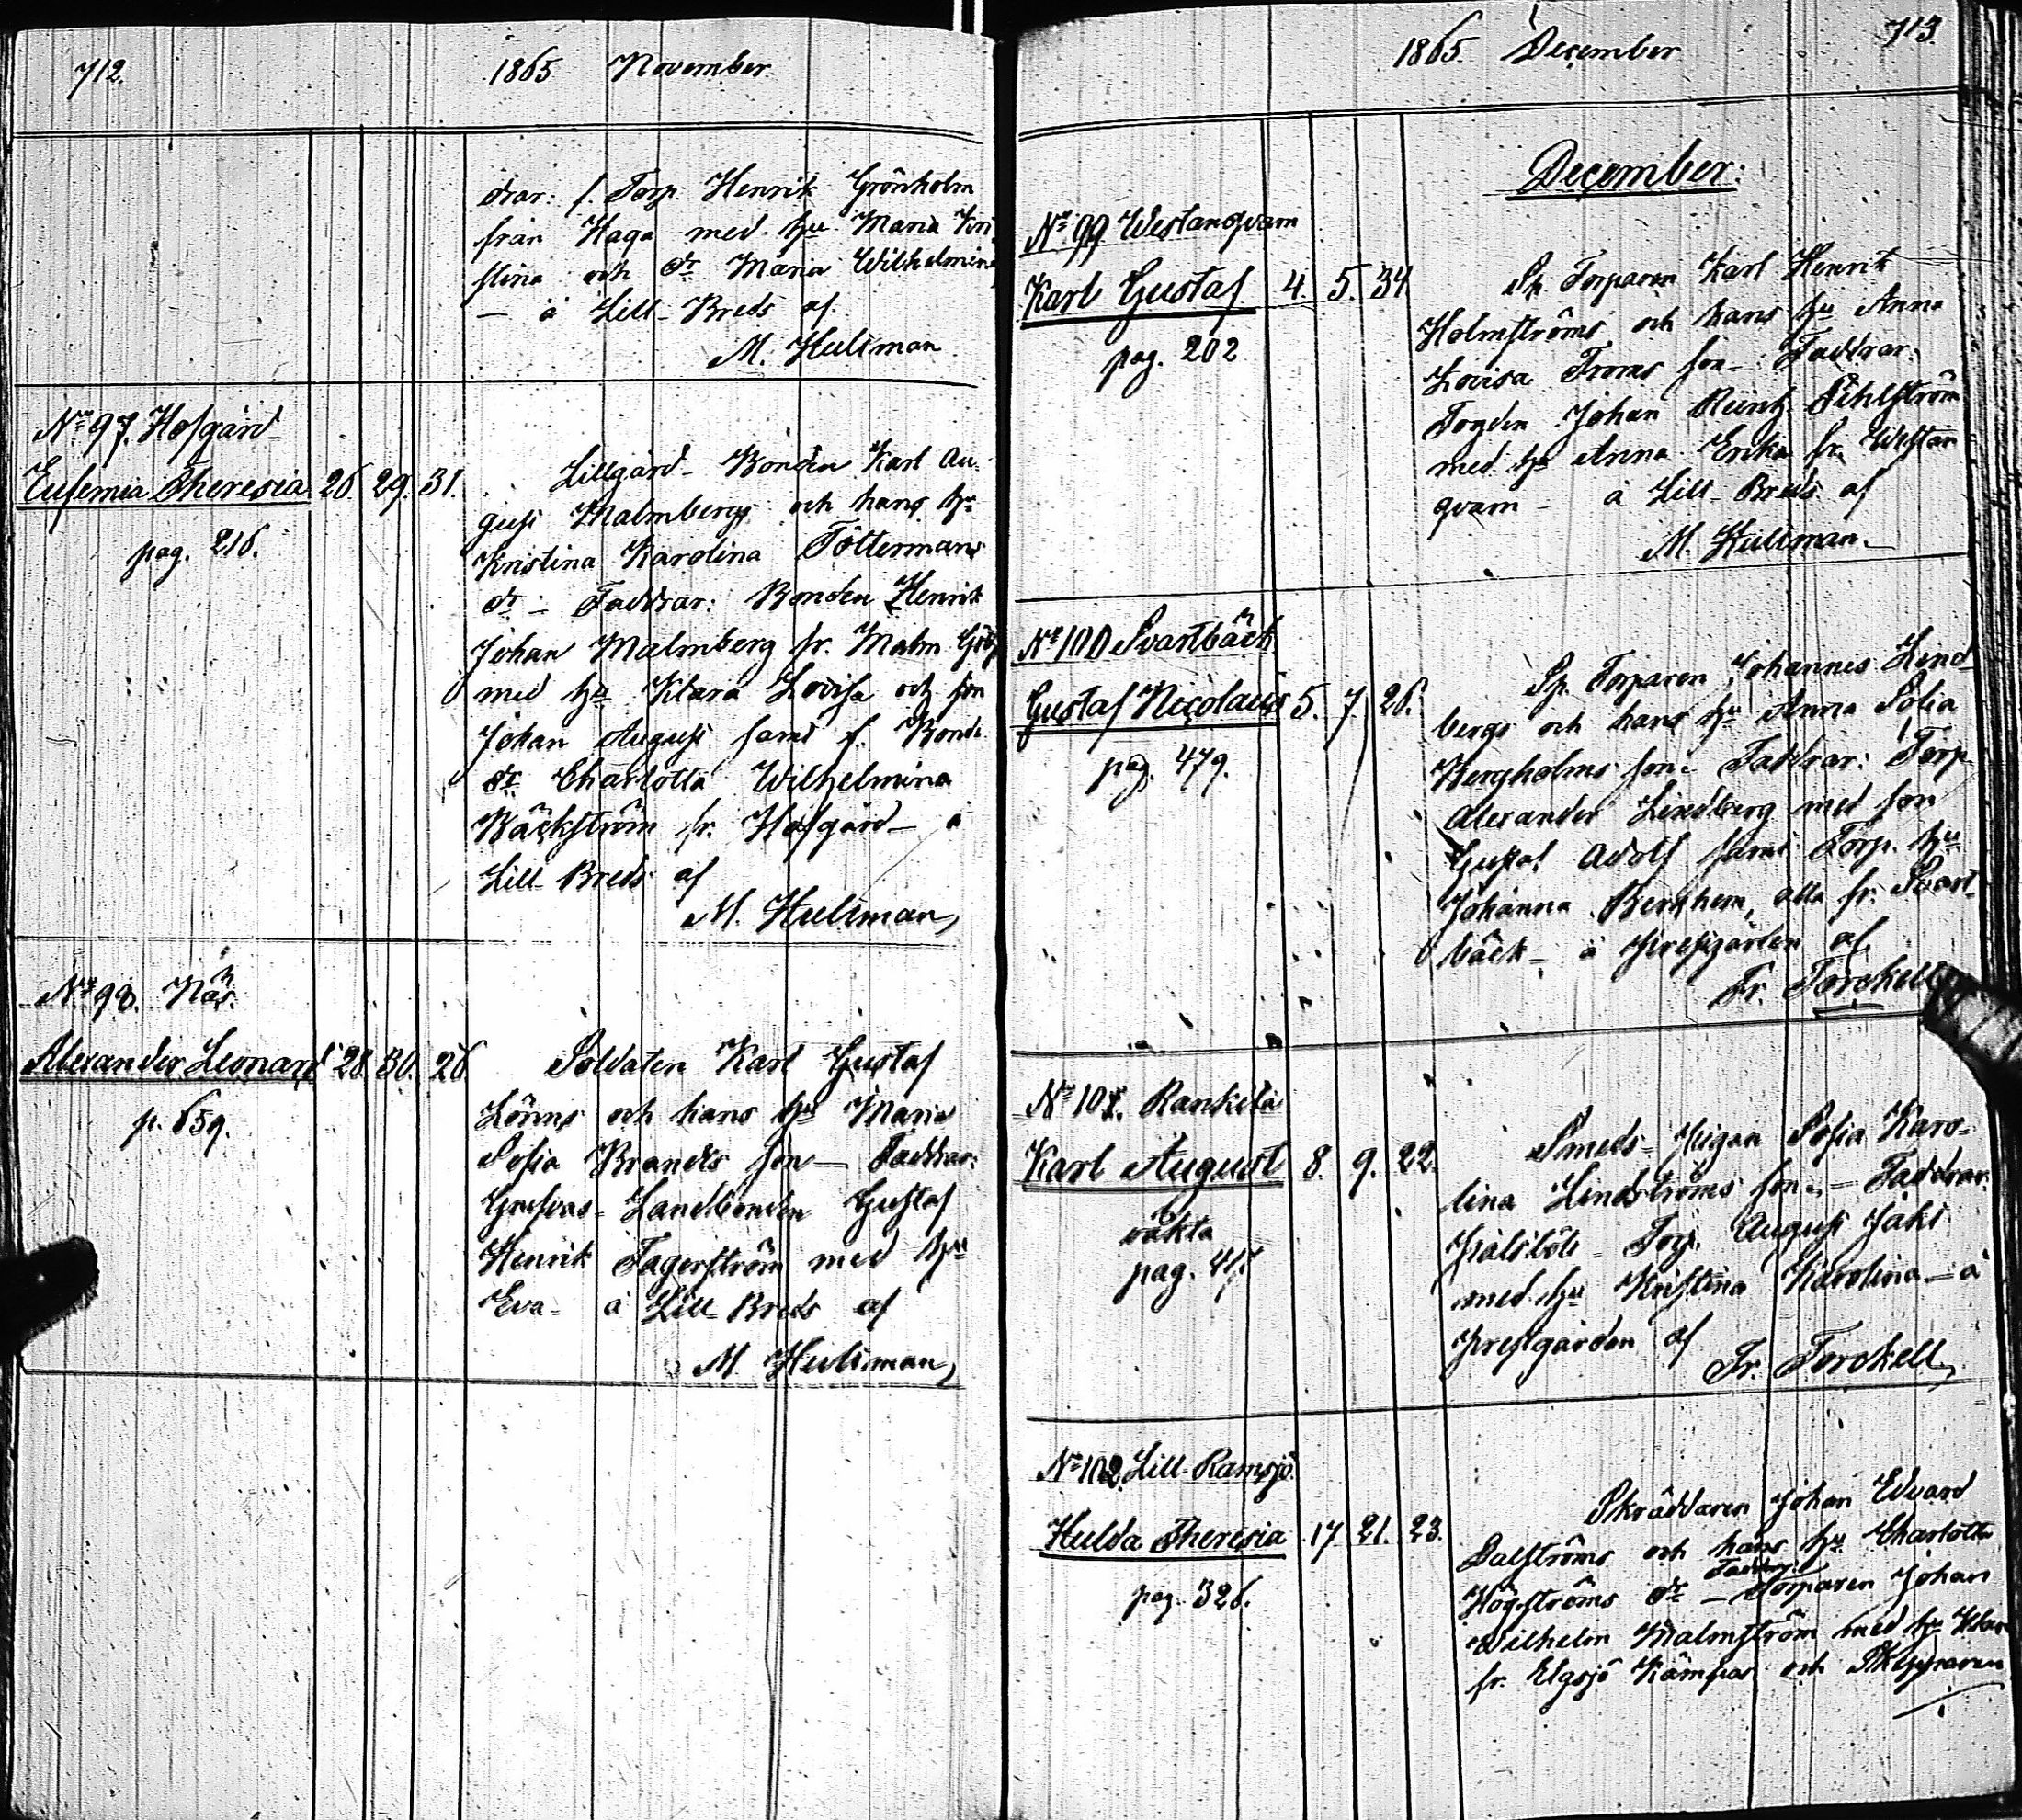 712.
1865 November
drar: f. Torp. Henrik Grönholm
från Haga med hu Maria Kri
stina och dr Maria Wilhelmina
— å Lill-Breds af
M. Hultman
No 97. Hofgård
Eufemia Theresia 26. 29. 31.
pag. 216.
Lillgård- Bonden Karl Au-
gust Malmbergs och hans hu
Kristina Karolina Töttermans
dr – Faddrar: Bonden Henrik
Johan Malmberg fr. Malm
med hu Klara Lovisa och son
Johan August samt f. Bonde
dr Charlotta Wilhelmina
Bäckström fr. Hofgård – å
Lill-Breds af
M. Hultman
No 98. Näs.
Alexander Leonard 28. 30. 26.
p. 659.
Soldaten Karl Gustaf
Lönns och hans hu Maria
Sofia Brands son — Faddrar:
Landbonden Gustaf
Henrik Fagerström med hu
Eva – å Lill-Breds af
M. Hultman
713.
1865. December
December:
No 99 Westanqvarn
Karl Gustaf 4. 5. 34.
pag. 202
Sp. Torparen Karl Henrik
Holmströms och hans hu Anna
Lovisa Froms son – Faddrar:
Fogden Johan Pihlström
med hu Anna Erika fr. Westan
qvarn – å Lill-Breds af
M. Hultman
No 100 Svartbäck
Gustaf Nicolaus 5. 7. 26.
pag. 479.
Sp. Torparen Johannes Lind-
bergs och hans hu Anna Sofia
Bergholms son – Faddrar: Torp.
Alexander Lindberg med son
Gustaf Adolf samt Torp. hu
Johanna Berghem, alla fr. Svart-
bäck – å Prestgården af
Fr. Forckell
No 101. Rankila
Karl August 8. 9. 22.
oäkta
pag. 417
Smeds-Pigan Sofia Karo-
lina Lindströms son. – Faddrar:
Torp. August Jakt
med hu Kristina Karolina – å
Prestgården af
Fr. Forckell
No 102. Lill-Ramsjö.
Hulda Theresia 17 21. 23.
pag. 326.
Skräddaren Johan Edvard
Dalströms och hans hu Charlotta
Högströms dr – Faddrar: Torparen Johan
Wilhelm Malmström med hu
fr. Elgsjö Kämpas och Skepparen